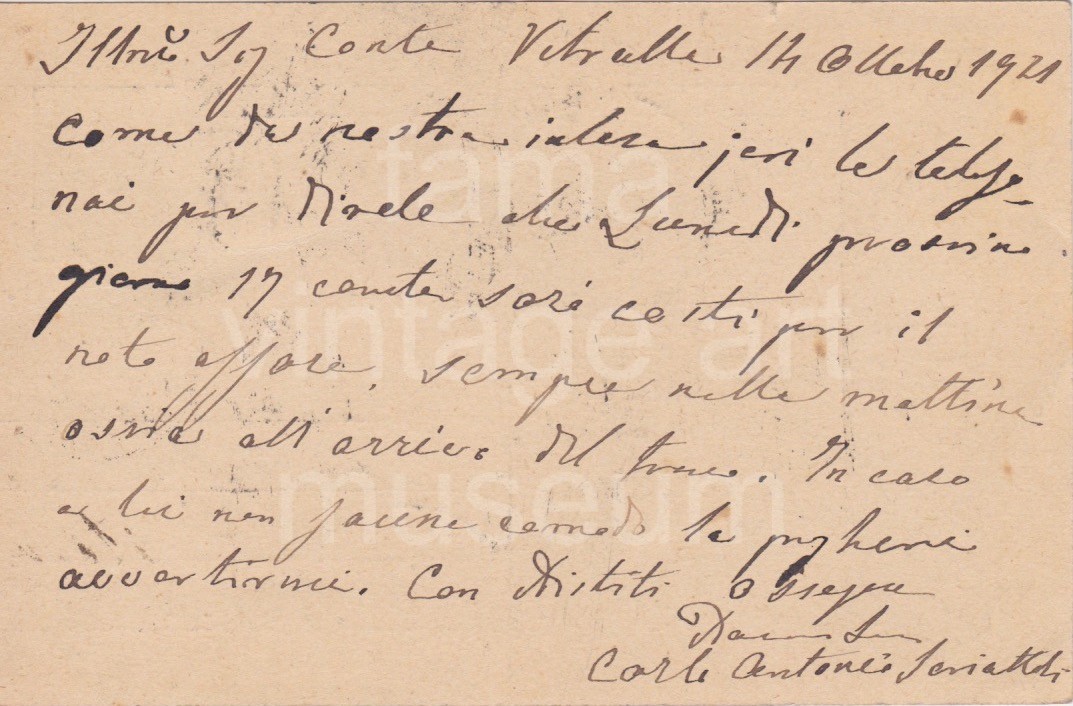 Illmo Sig Conte Vetralla 14 Ottobre 1921
come da nostra intesa jeri le telefo-
nai per dirle che Lunedi prossimo
giorno 17 corrente sarò costi per il
noto affare, sempre nella mattina
ossia all'arrivo del treno. In caso
a lei non facesse comodo la pregherei
avvertirmi. Con distinti ossequi
Carlo Antonio
fama
vintage art
museum